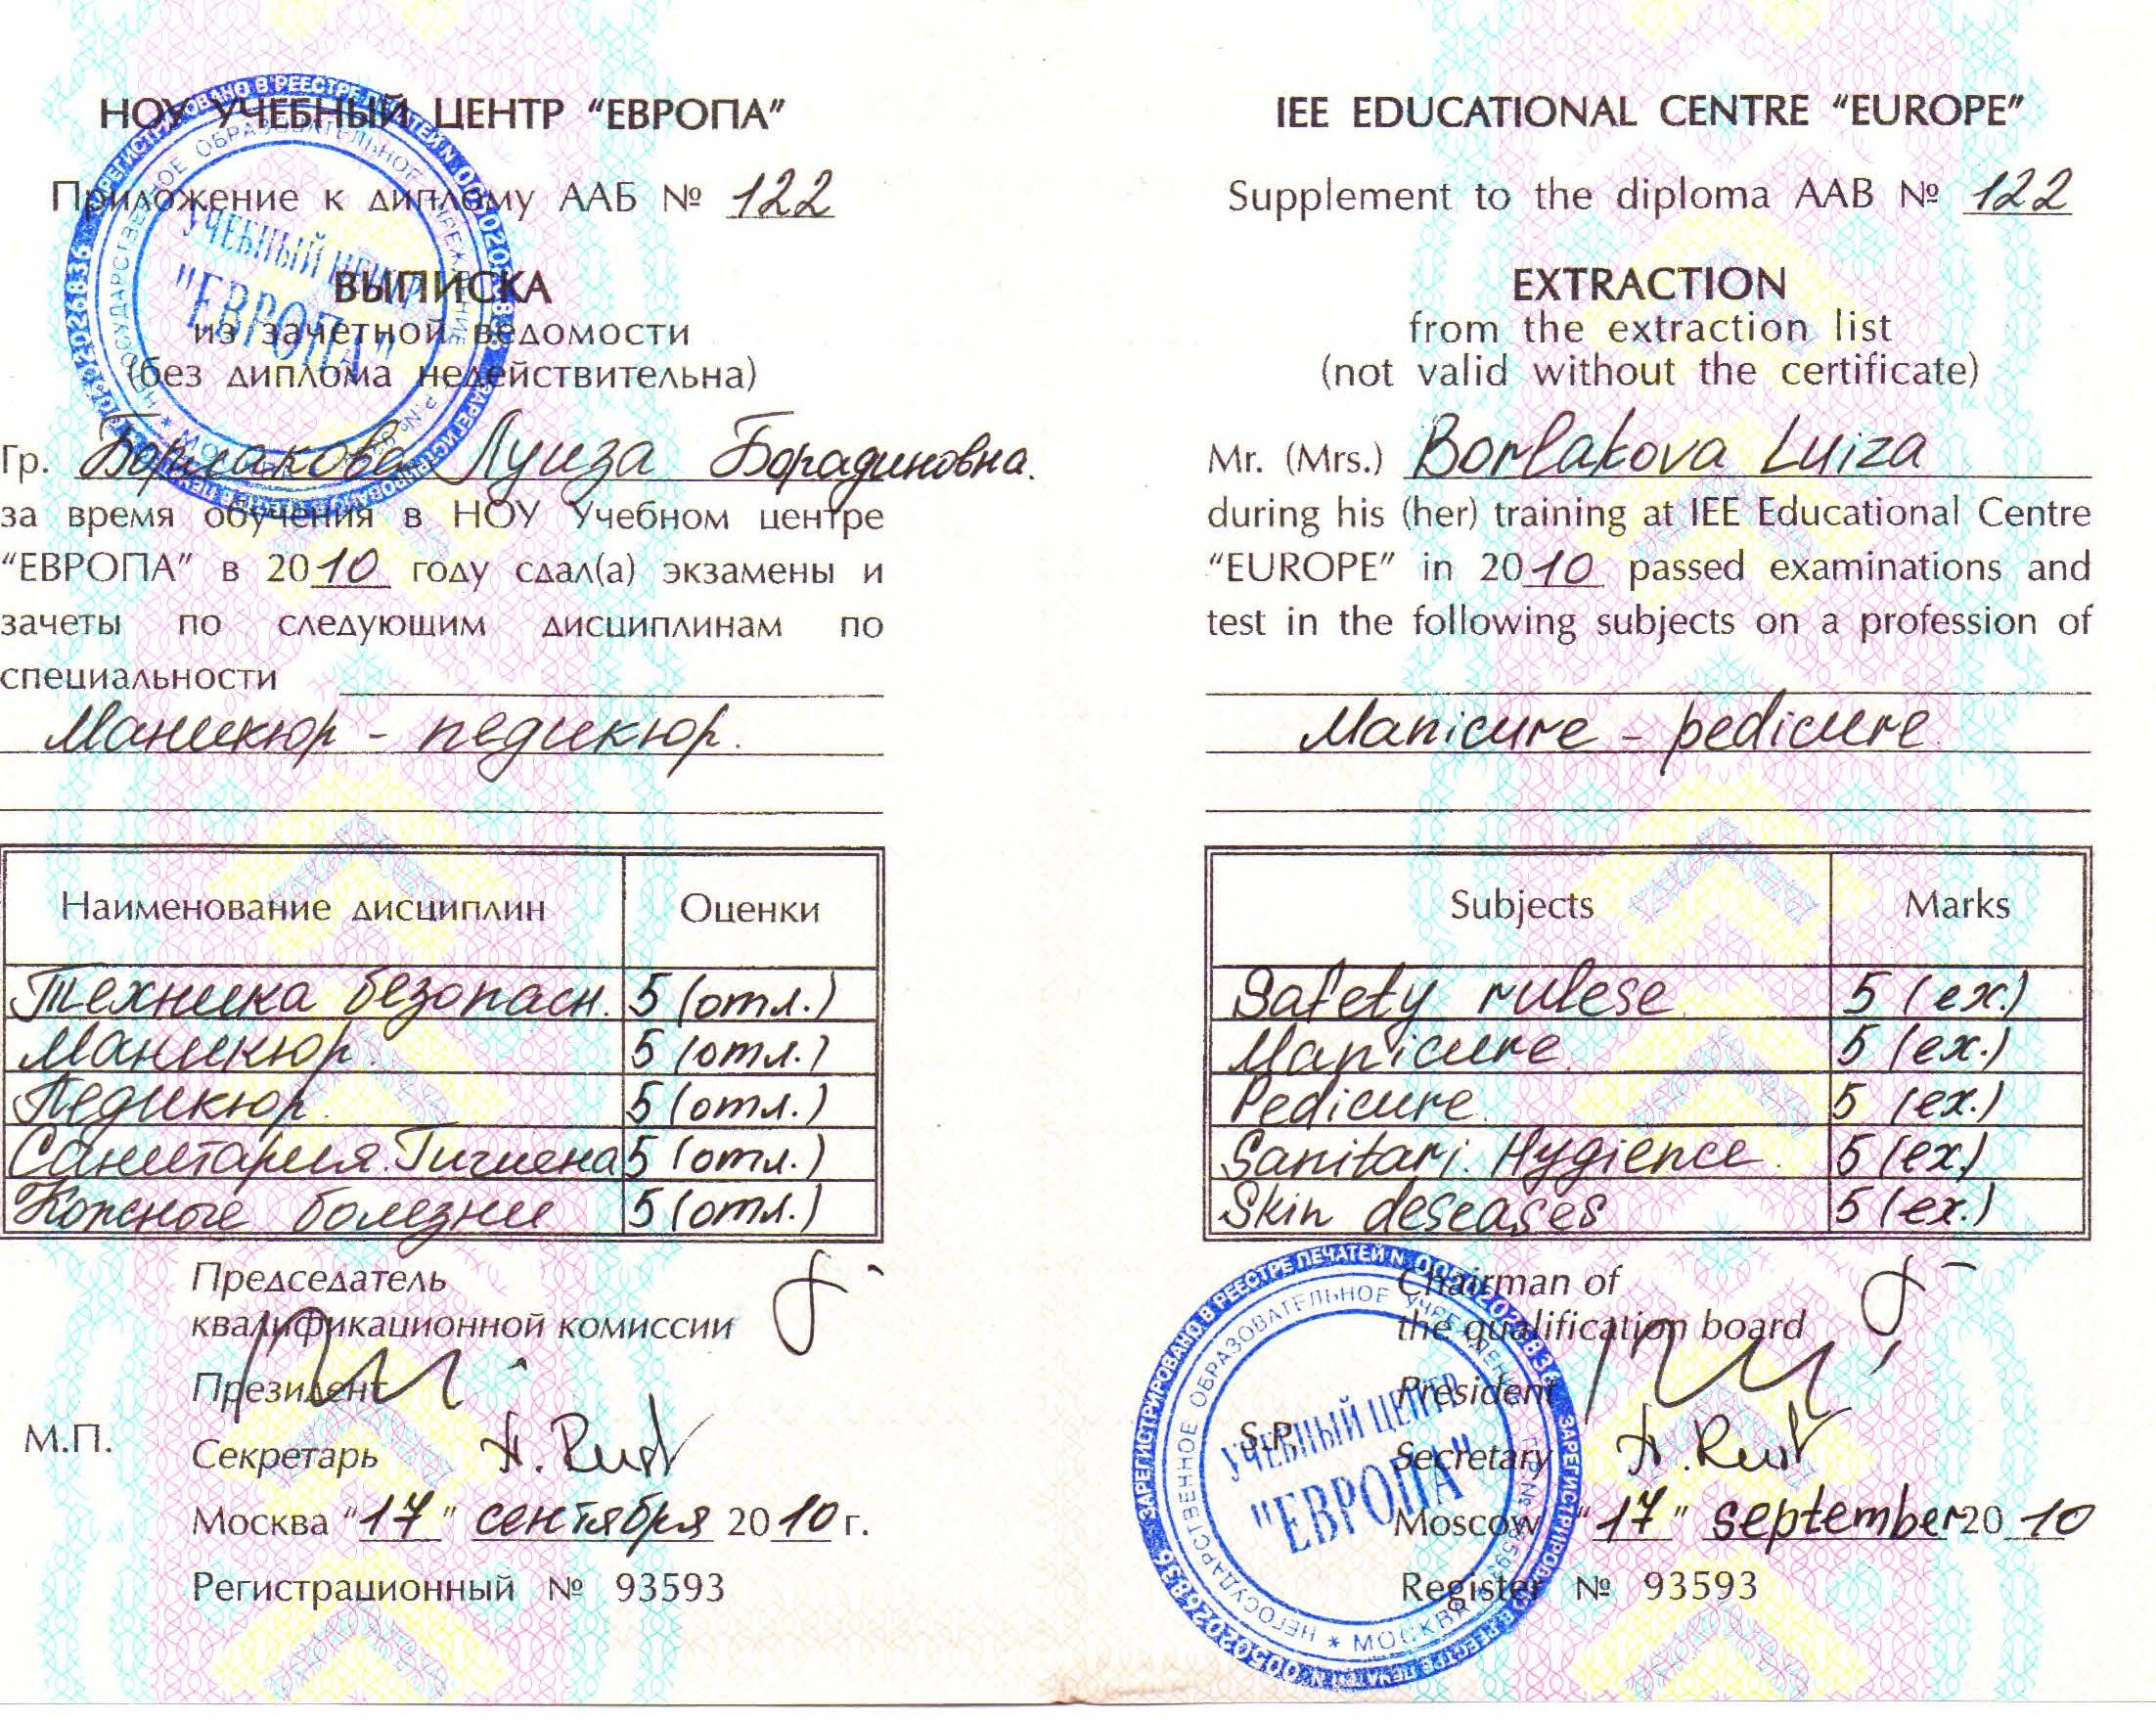 НОУ УЧЕБНЫЙ ЦЕНТР "ЕВРОПА"
Приложение к диплому ААБ № 122
ВЫПИСКА
из зачетной ведомости
(без диплома недействительна)
Гр. Борлакова Луиза Борадиновна.
за время обучения в НОУ Учебном центре
"ЕВРОПА" в 2010 году сдал(а) экзамены и
зачеты по следующим дисциплинам по
специальности
Маникюр - педикюр.
Наименование дисциплин Оценки
Техника безопасн. 5 (отл.)
Маникюр. 5 (отл.)
Педикюр. 5 (отл.)
Санитария. Гигиена 5 (отл.)
Кожные болезни 5 (отл.)
Председатель
квалификационной комиссии
Президент
М.П.
Секретарь
Москва "17" сентября 2010 г.
Регистрационный № 93593
IEE EDUCATIONAL CENTRE "EUROPE"
Supplement to the diploma AAB № 122
EXTRACTION
from the extraction list
(not valid without the certificate)
Mr. (Mrs.) Borlakova Luiza
during his (her) training at IEE Educational Centre
"EUROPE" in 2010 passed examinations and
test in the following subjects on a profession of
Manicure - pedicure.
Subjects Marks
Safety rulese. 5 (ex.)
Manicure. 5 (ex.)
Pedicure. 5 (ex.)
Sanitari. Hygience. 5 (ex.)
Skin deseases 5 (ex.)
Chairman of
the qualification board
President
S.P.
Secretary
Moscow "17" september 2010
Register № 93593
УЧЕБНЫЙ ЦЕНТР
"ЕВРОПА"
УЧЕБНЫЙ ЦЕНТР
"ЕВРОПА"